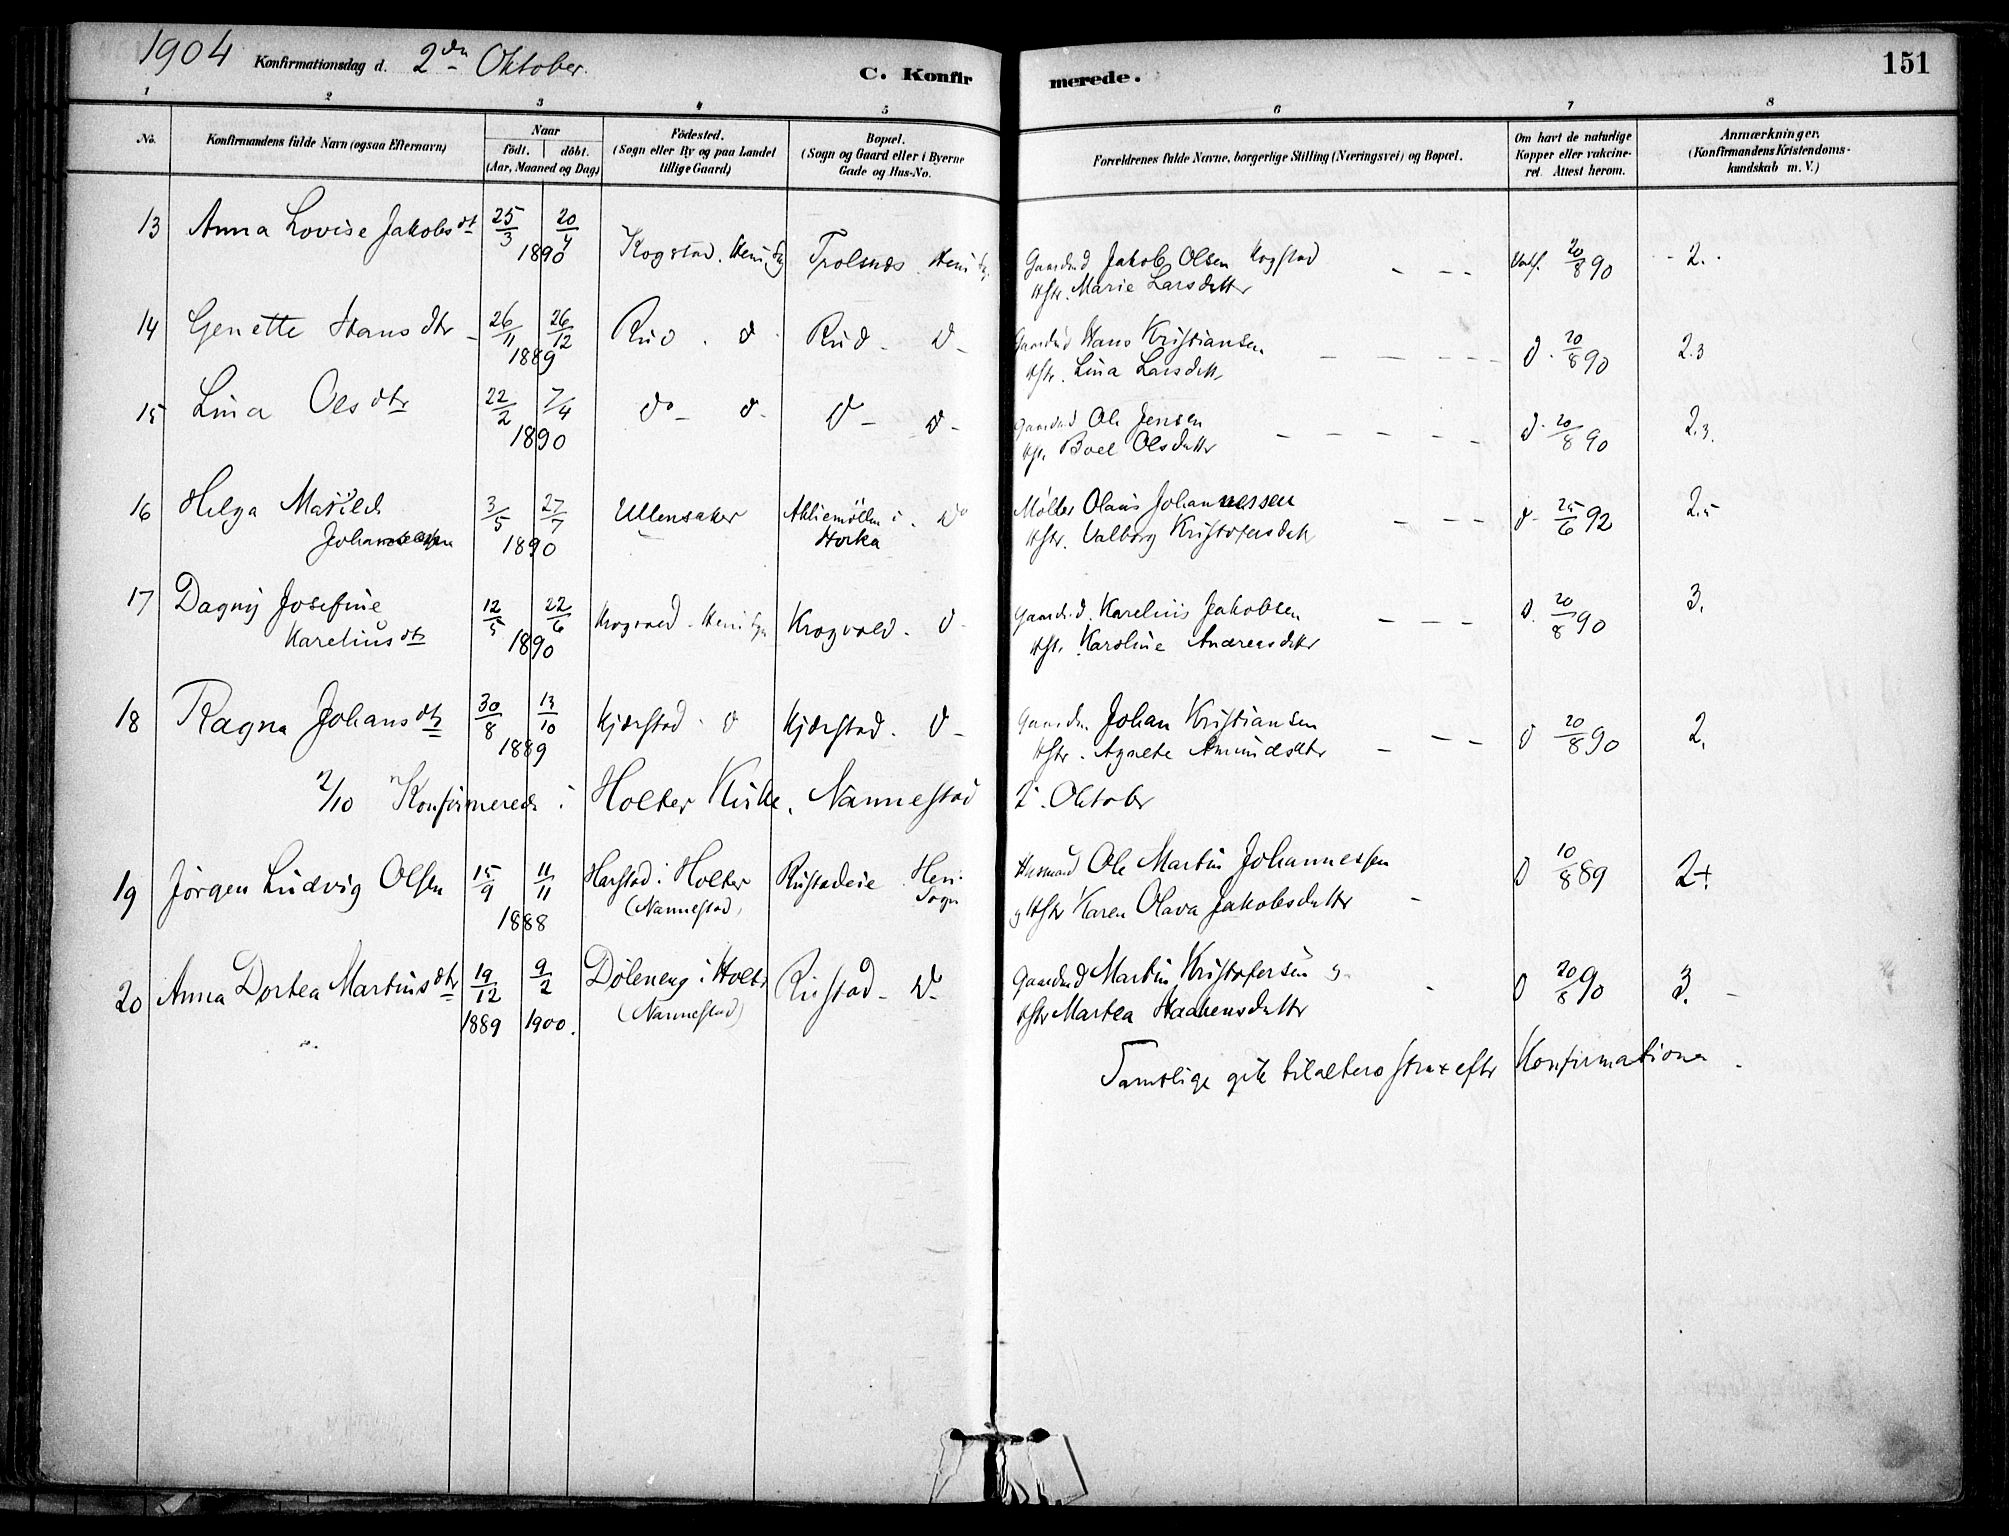 1904 Konfirmationsdag d. 2den Oktober. C. Konfirmerede. 151
1 2 3 4 5 6 7 8
No. Konfirmandens fulde Navn (ogsaa Efternavn) Naar födt. döbt. (Aar, Maaned og Dag) Födested. (Sogn eller By og paa Landet tillige Gaard) Bopæl. (Sogn og Gaard eller i Byerne Gade og Hus-No. Forældrenes fulde Navne, borgerlige Stilling (Næringsvei) og Bopæl. Om havt de naturlige Kopper eller vakcineret. Attest herom. Anmærkninger. (Konfirmandens Kristendomskundskab m. V.)
13 Anna Lovise Jakobsdt 25/3 20/4 1890 Kogstad. Heni Sg Trolsnes. Heni Sg. Gaardbrd Jakob Olsen Kogstad Hstr. Marie Larsdatter 20/8 90 2.
14 Genette Hansdtr 26/11 26/12 1889 Rud. d Rud. d Hans Kristiansen Hstr. Lina Larsdatt d. 20/8 90 2.3
15 Lina Olsdtr 22/2 7/4 1890 do d do d Ole Jensen Hstr. Boel Olsdatter d. 20/8 90 2.3.
16 Helga Johannessen 3/5 27/7 1890 Ullensaker i Horka do Møller Olaus Johannessen Hstr. Valborg Kristofersdatt d. 25/6 92 2.5
17 Dagny Josefine Kareliusdtr 12/5 22/6 1890 Krogvold Heni Sgn Krogvold. d Karelius Jakobsen Hstr. Karoline Andreasdatter d. 20/8 90 3.
18 Ragna Johansdtr 30/8 13/10 1889 Kjærstad. d Kjærstad. d Johan Kristiansen Hstr. Agnete Amundsdtr d 20/8 90 2.
2/10 Konfirmerede i Holter Kirke, Nannestad 2. Oktober
19 Jörgen Ludvig Olsen 15/9 11/11 1888 Harstad i Holter (Nannestad) Rustadeie Heni Sogn Husmand Ole Martin Johannessen og Hstr Karen Olava Jakobsdatter d 10/8 89 2+
20 Anna Dortea Martinsdtr 19/12 9/2 1889 1900. Döleneng i Holter (Nannestad) Rustad. do Martin Kristofersen g. Hstr Martea Haakensdatter d 20/8 90 3.
Samtlige gik tilalters strax efter Konfirmationen.